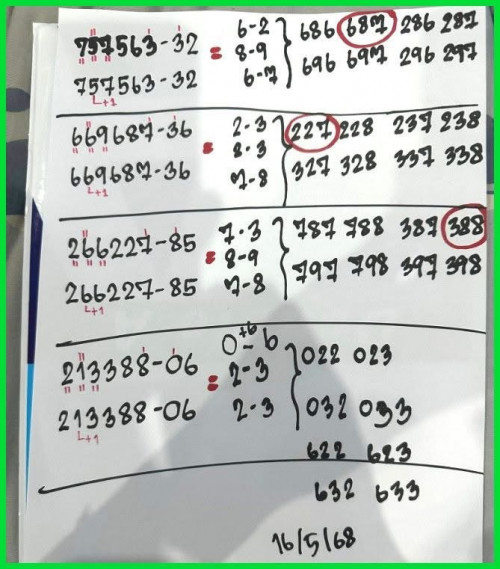 757563-32 = 6-2 } 686 687 286 287
8-9
757563-32 6-7 696 697 296 297
+1
669687-36 = 2-3 } 227 228 237 238
2-3
669687-36 7-8 327 328 337 338
+1
266227-85 = 7-3 } 787 788 387 388
8-9
266227-85 7-8 797 798 397 398
+1
0+6-6
213388-06 = 2-3 } 022 023
213388-06 2-3 032 033
+1
622 623
632 633
16/5/68